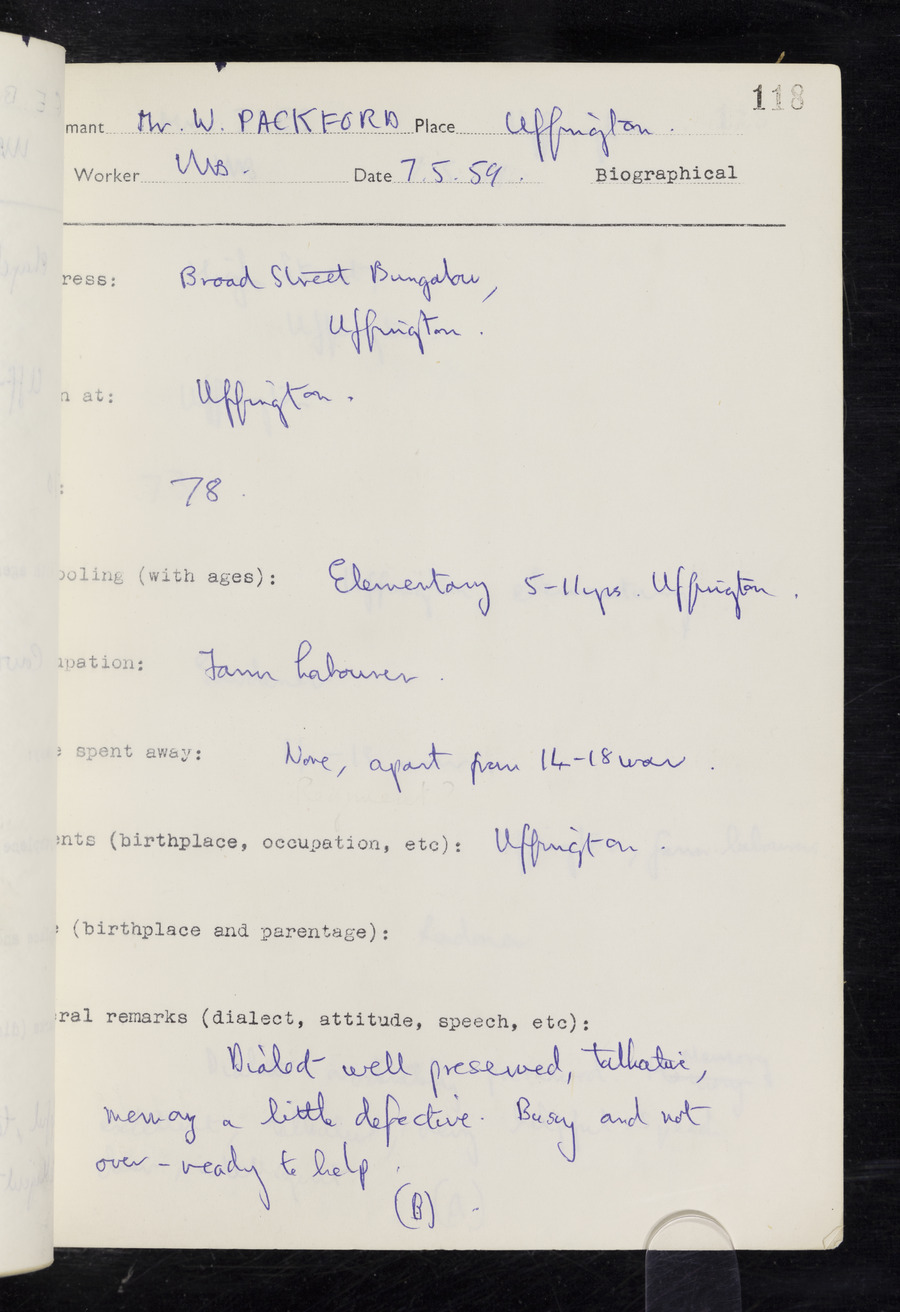 118
mant Mr. W. PACKFORD Place Uffington.
Worker Date 7.5.59. Biographical
ress: Broad Street Bungalow,
Uffington.
n at: Uffington.
: 78.
ooling (with ages): Elementary 5-11yrs. Uffington.
upation: Farm labourer.
e spent away: None, apart from 14-18 war.
ents (birthplace, occupation, etc): Uffington.
e (birthplace and parentage):
ral remarks (dialect, attitude, speech, etc):
Dialect well preserved, talkative,
memory a little defective. Busy and not
over-ready to help.
(B).